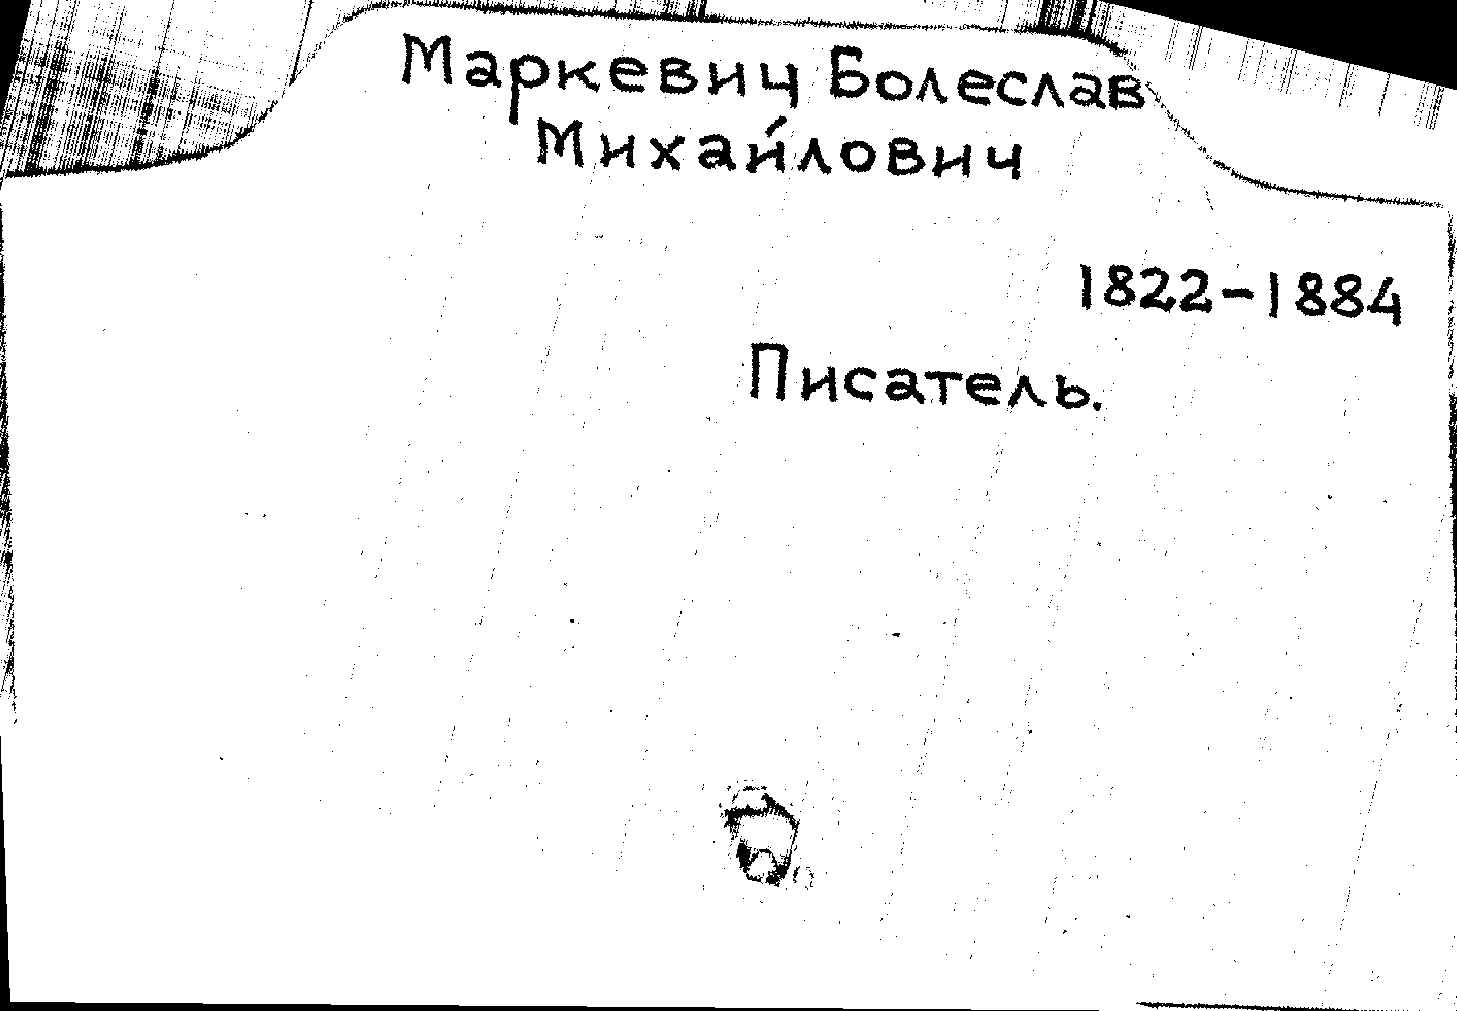 Маркевич Болеслав
Миха́илович
1822-1884
Писатель.